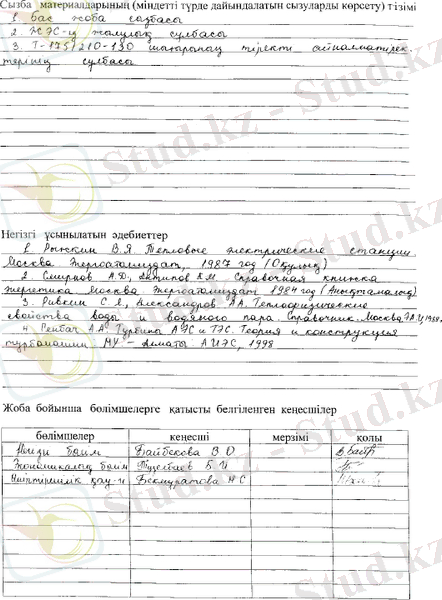 Сызба материалдарының (міндетті түрде дайындалатын сызуларды көрсету) тізімі
1. Бас жоба сызбасы
2. ЖЭС-ң жылулық сұлбасы
3. Т-175/210-130 шығырының
сұлбасы
Негізгі ұсынылатын әдебиеттер
1. Рыжкин В.Я Тепловые электрические станции
Москва Энергоатомиздат, 1987 год (Оқулық)
2. Смирнов А.Д, Антипов К.М. Справочная книжка
энергетика Москва Энергоатомиздат 1984 год (Анықтамалық)
3. Ривкин С.Л, Александров А.А. Теплофизические
свойства воды и водяного пара Справочник. Москва
4. А.А Турбины АЭС и ТЭС. Теория и конструкция
турбомашин Алматы: АИЭС, 1998
Жоба бойынша бөлімшелерге қатысты белгіленген кеңесшілер
бөлімшелер кеңесші мерзімі қолы
Негізгі бөлім Байбекова В.О
Экономикалық бөлім Тузелбаев Б.И
Бекмуратова Н.С
Stud.kz - Stud.kz
Stud.kz - Stud.kz
Stud.kz